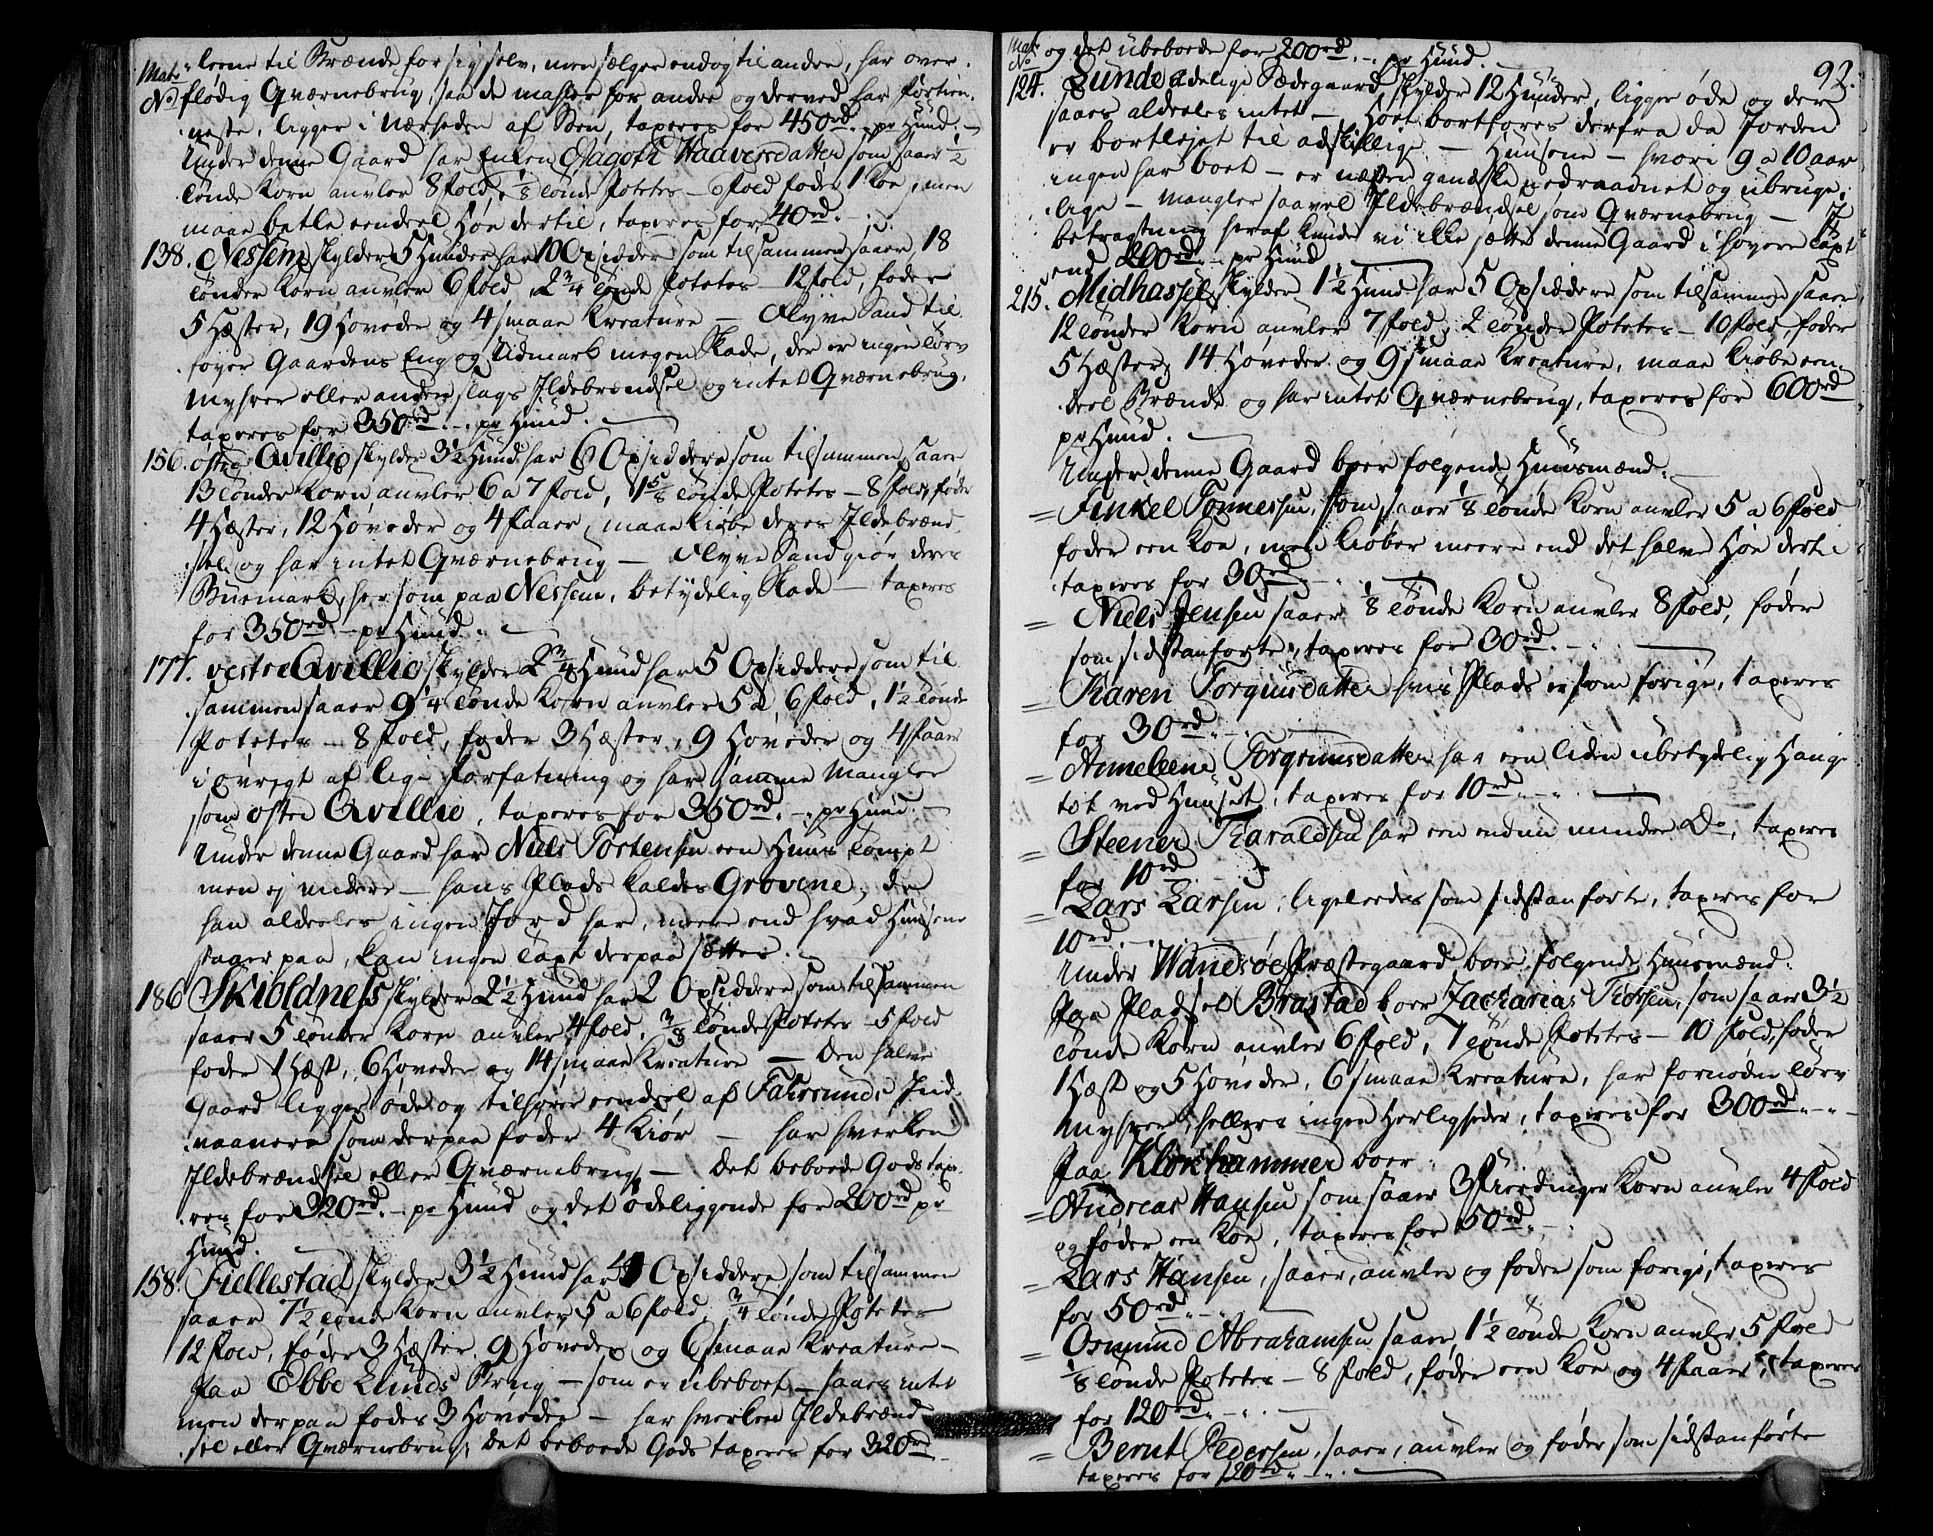 Matr
No
"lerne til Brænde for sig selv, men sælger endog til andre, har over¬
flødig Qværnebrug, saa de mahler for andre og derved har fortien¬
neste, ligger i Nærheden af Søen, taxeres for 450rd. pr Hund. —
Under denne Gaard har Enken Aagoth Haaversdatter som saaer 1/2
tønde Korn avler 8 fold, 1/8 tønde Potetes – 6 fold føder 1 Koe, men
maa betle eendeel Høe dertil, taxeres for 40rd. –.
138. Nessem skylder 5 Hunder har 10 Opsiddere som tilsammen saaer 18
tønder Korn avler 6 fold, 2 3/4 tønde Potetes – 12 fold, føder
5 Hæster, 19 Høveder og 4 smaae Kreature — Flyve Sand til¬
føyer Gaardens Eng og Udmark megen Skade, der er ingen Tørv
Myhrer eller anden slags Ildebrændsel og intet Qværnebrug,
taxeres for 350rd. – pr Hund. —
156. østre Qvillio skylder 3 1/2 Hund har 6 Opsiddere som tilsammen saaer
13 tønder Korn avler 6 a 7 fold, 1 5/8 tønde Potetes – 8 fold, føder
4 Hæster, 12 Høveder og 4 Faaer, maae kiøbe deres Ildebrænd¬
sel og har intet Qværnebrug — Flyve Sand giør deres
Buemark, her som paa Nessem, betydelig Skade — taxeres
for 350rd. – pr Hund. —
177. vestre Qvillio skylder 2 3/4 Hund har 5 Opsiddere som til¬
sammen saaer 9 1/4 tønde Korn avler 5 a 6 fold, 1 1/2 tønde
Potetes – 8 fold, føder 3 Hæster, 9 Høveder og 4 Faaer
i øvrigt af lige Forfatning og har samme Mangler
som østre Qvillio, taxeres for 350rd. –. pr Hund. –
Under denne Gaard har Niels Tortensen een Huus Tompt
men ej videre — hans Plads kaldes Grovene, da
han aldeeles ingen Jord har, meere end hvad Husene
staaer paa, kan ingen Taxt derpaa sættes. –
186 Skioldnes skylder 2 1/2 Hund har 2 Opsiddere som tilsammen
saaer 5 tønder Korn avler 4 fold, 3/8 tønde Potetes – 5 fold
føder 1 Hæst, 6 Høveder og 14 smaae Kreature — Den halve
Gaard ligger øde og tilhører eendeel af Fahrsunds Ind¬
vaanere som derpaa føder 4 Kiør — har hverken
Ildebrændsel eller Qværnebrug — Det beboede Gods taxe¬
res for 320rd. – pr Hund og det ødeliggende for 200rd pr
Hund. —
158. Fiellestad skylder 3 1/2 Hund har 4 Opsiddere som tilsammen
saaer 7 1/2 tønde Korn avler 5 a 6 fold, 3/4 tønde Potetes
12 fold, føder 3 Hæster, 9 Høveder og 6 smaae Kreature –
Paa Ebbe Lunds Brug – som er ubeboet – saaes intet
men derpaa fødes 3 Høveder – har hverken Ildebrænd¬
sel eller Qværnebrug, det beboede Gods taxeres for 320rd. –
92.
Matr
No
og det ubeboede for 200rd. –. pr Hund. —
124. Lunde adelige Sædegaard skylder 12 Hunder, ligger øde og der
saaes aldeeles intet – Høet bortføres derfra da Jorden
er bortlejet til adskillige — Husene – hvori 9 a 10 aar
ingen har boet – er næsten gandske nedraadnet og ubruge¬
lige – Mangler saavel Ildebrændsel som Qværnebrug — I
betragtning heraf kunde vi ikke sætte denne Gaard i høyere Taxt
end 200rd. –. pr Hund —
215. Midhassel skylder 1 1/2 Hund har 5 Opsiddere som tilsammen saaer
12 tønder Korn avler 7 fold, 2 tønder Potetes – 10 fold, føder
5 Hæster, 14 Høveder og 9 smaae Kreature, maae kiøbe een¬
deel Brænde og har intet Qværnebrug, taxeres for 600rd
pr Hund. —
Under denne Gaard boer følgende Huusmænd. —
= Finkel Tønnessen, som saaer 1/8 tønde Korn avler 5 a 6 fold
føder een Koe, men kiøber meere end det halve Høe derti¬
taxeres for 30rd. – —
= Niels Jensen saaer 1/8 tønde Korn avler 8 fold, føder
som sidstanførte, taxeres for 30rd. – —
= Karen Torgrimsdatter hvis Plads er som forige, taxeres
for 30rd. –.
= Anneleene Torgrimsdatter har een liden ubetydelig Hauge
tot ved Huuset, taxeres for 10rd. – —
= Steener Haraldsen har een endnu mindre Do, taxeres
for 10rd. –
= Lars Larsen, ligeleedes som sidstanførte, taxeres for
10rd. –. —
Under Wandsøe Præstegaard boer følgende Huusmænd.
Paa Pladsen Brastad boer Zacharias Torsen, som saaer 3 1/2
tønde Korn avler 6 fold, 1 tønde Potetes – 10 fold, føder
1 Hæst og 5 Høveder, 6 smaae Kreature, har fornøden Tørv
Myhrer, hellers ingen Herligheder, taxeres for 300rd. –
Paa Klokhammer boer
= Andreas Hansen som saaer 3 Fierdinger Korn avler 4 fold
og føder een Koe, taxeres for 50rd. –.
= Lars Hansen, saaer, avler og føder som forige, taxeres
for 50rd. – —
= Osmund Abrahamsen saaer 1 1/2 tønde Korn avler 5 fold
1/8 tønde Potetes – 8 fold, føder een Koe og 4 Faaer, taxeres
for 120rd. – —
= Bernt Pedersen, saaer, avler og føder som sidstanførte
taxeres for 120rd. – —